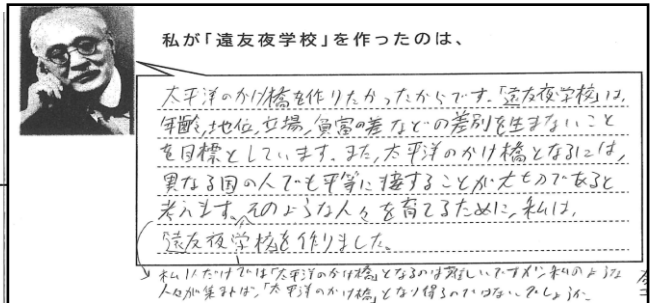 私が「遠友夜学校」を作ったのは、
太平洋のかけ橋を作りたかったからです。「遠友夜学校」は、
年齢、地位、立場、貧富の差などの差別を生まないこと
を目標としています。また、太平洋のかけ橋となるには、
異なる国の人でも平等に接することが大切であると
考えます。そのような人々を育てるために、私は、
遠友夜学校を作りました。
私1人だけでは「太平洋のかけ橋」となるのは難しいですが、私のような
人々が集まれば、「太平洋のかけ橋」となり得るのではないでしょうか。